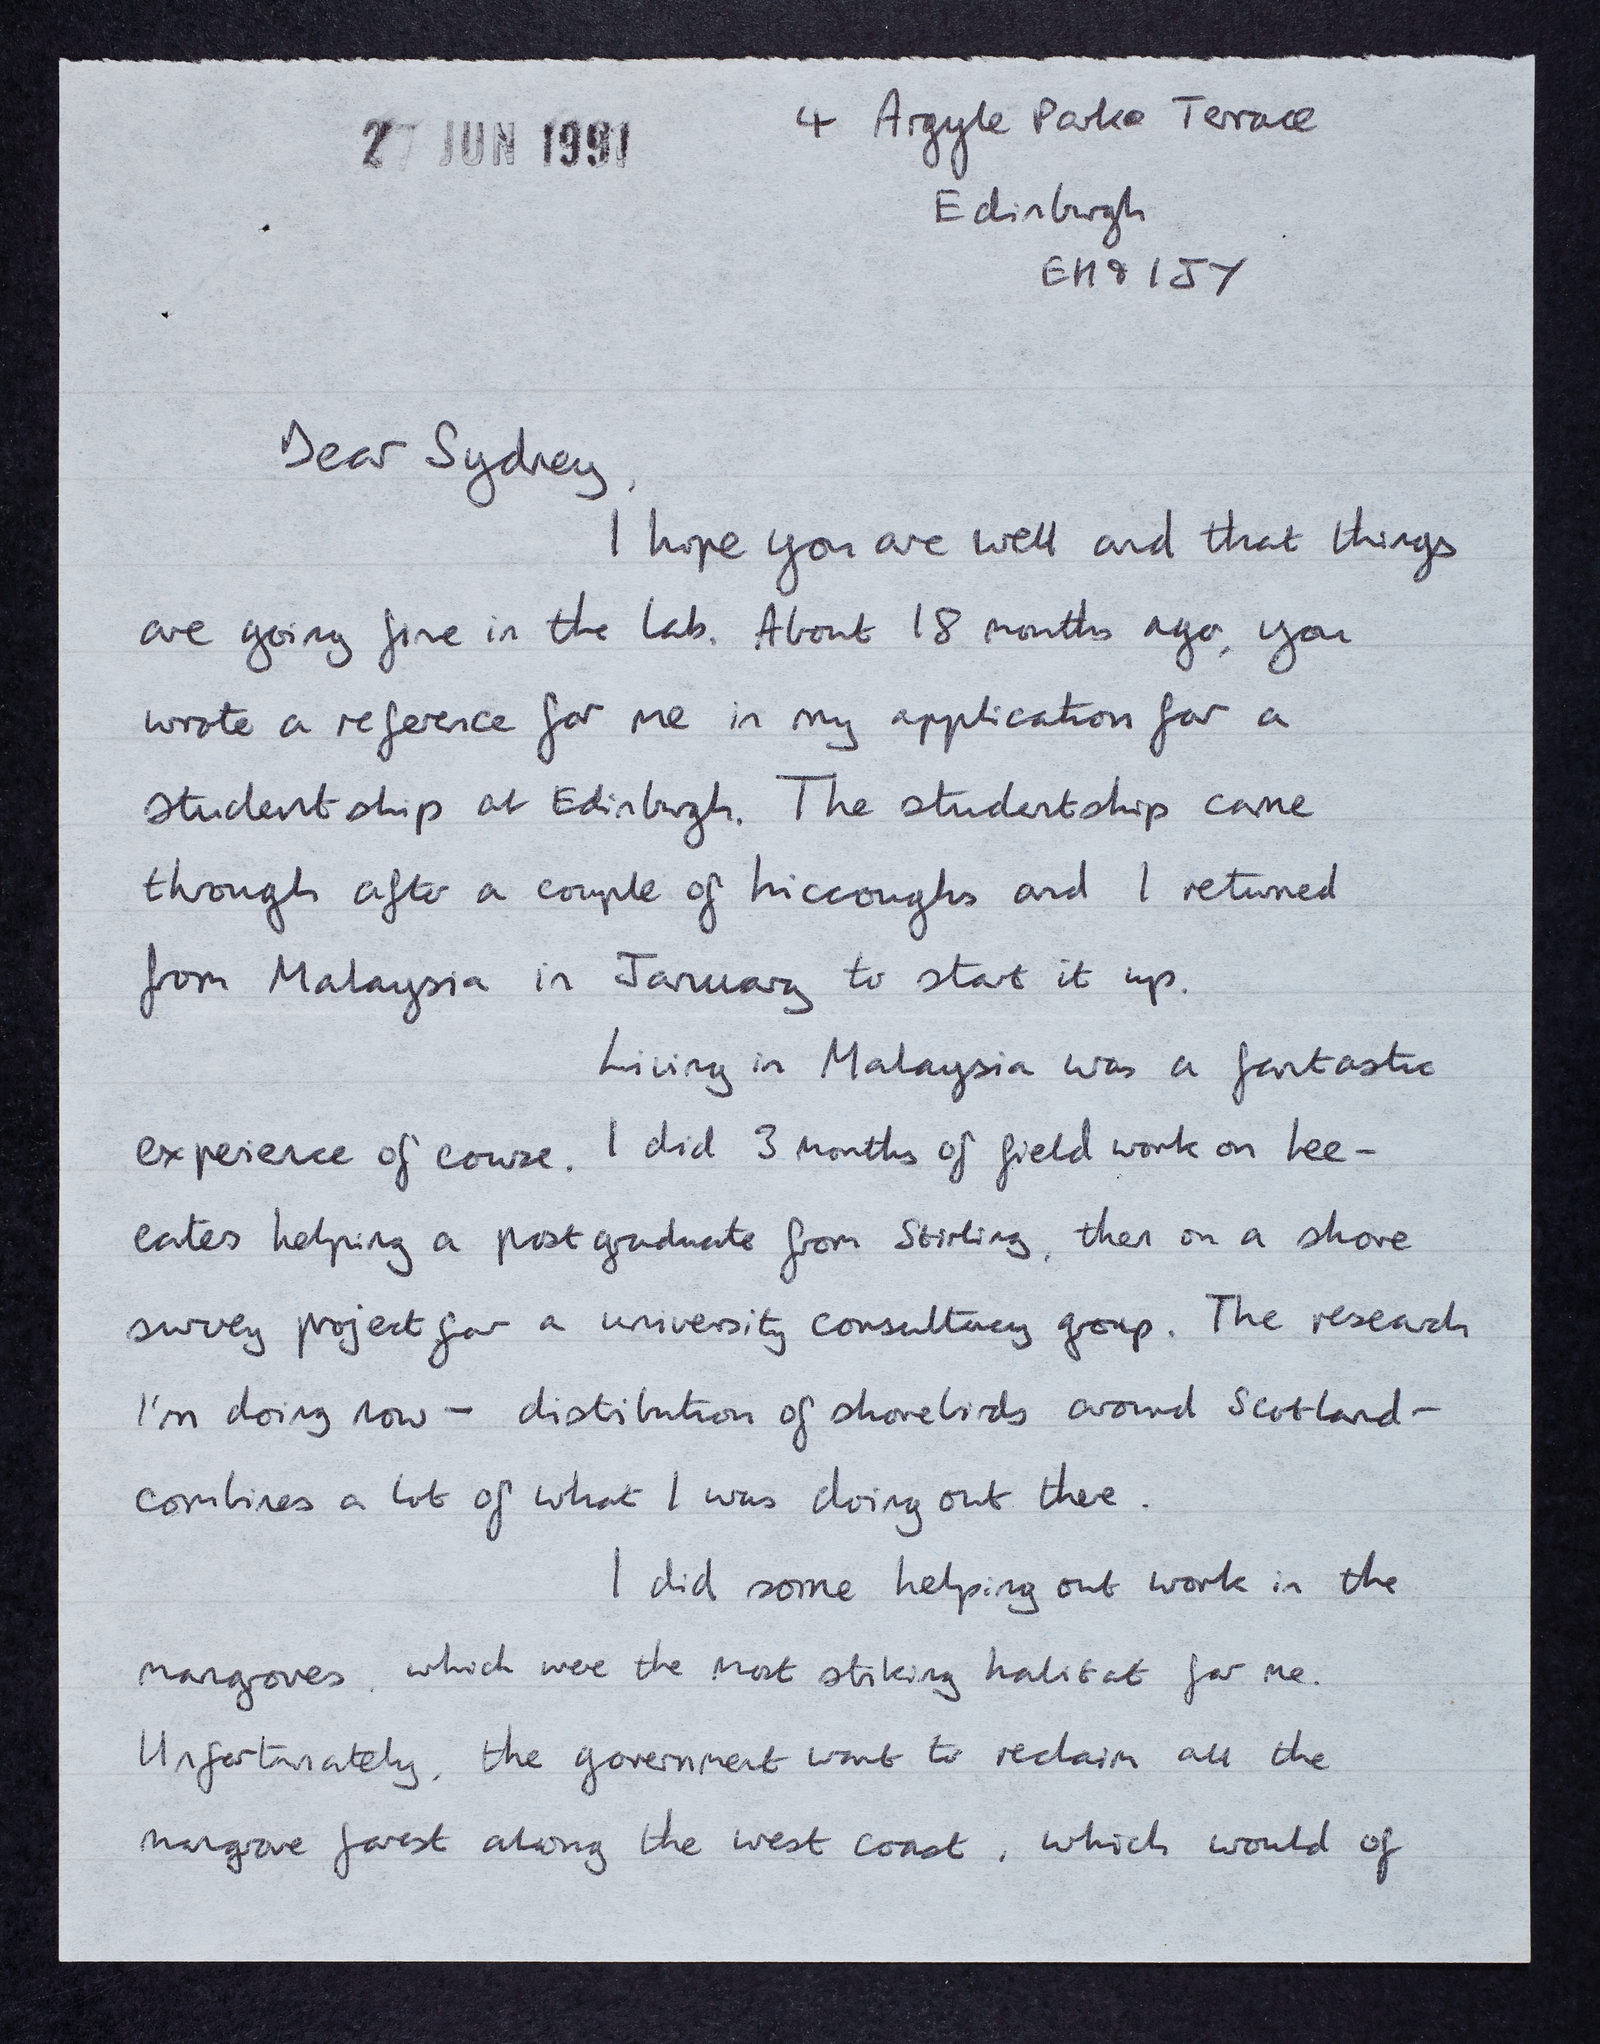 27 JUN 1991
4 Argyle Park Terrace
Edinburgh
EH9 1JY
Dear Sydney,
I hope you are well and that things
are going fine in the lab. About 18 months ago, you
wrote a reference for me in my application for a
studentship at Edinburgh. The studentship came
through after a couple of hiccoughs and I returned
from Malaysia in January to start it up.
Living in Malaysia was a fantastic
experience of course. I did 3 months of field work on bee-
eaters helping a postgraduate from Stirling, then on a shore
survey project for a university consultancy group. The research
I'm doing now – distribution of shorebirds around Scotland –
combines a lot of what I was doing out there.
I did some helping out work in the
mangroves, which were the most striking habitat for me.
Unfortunately, the government want to reclaim all the
mangrove forest along the west coast, which would of